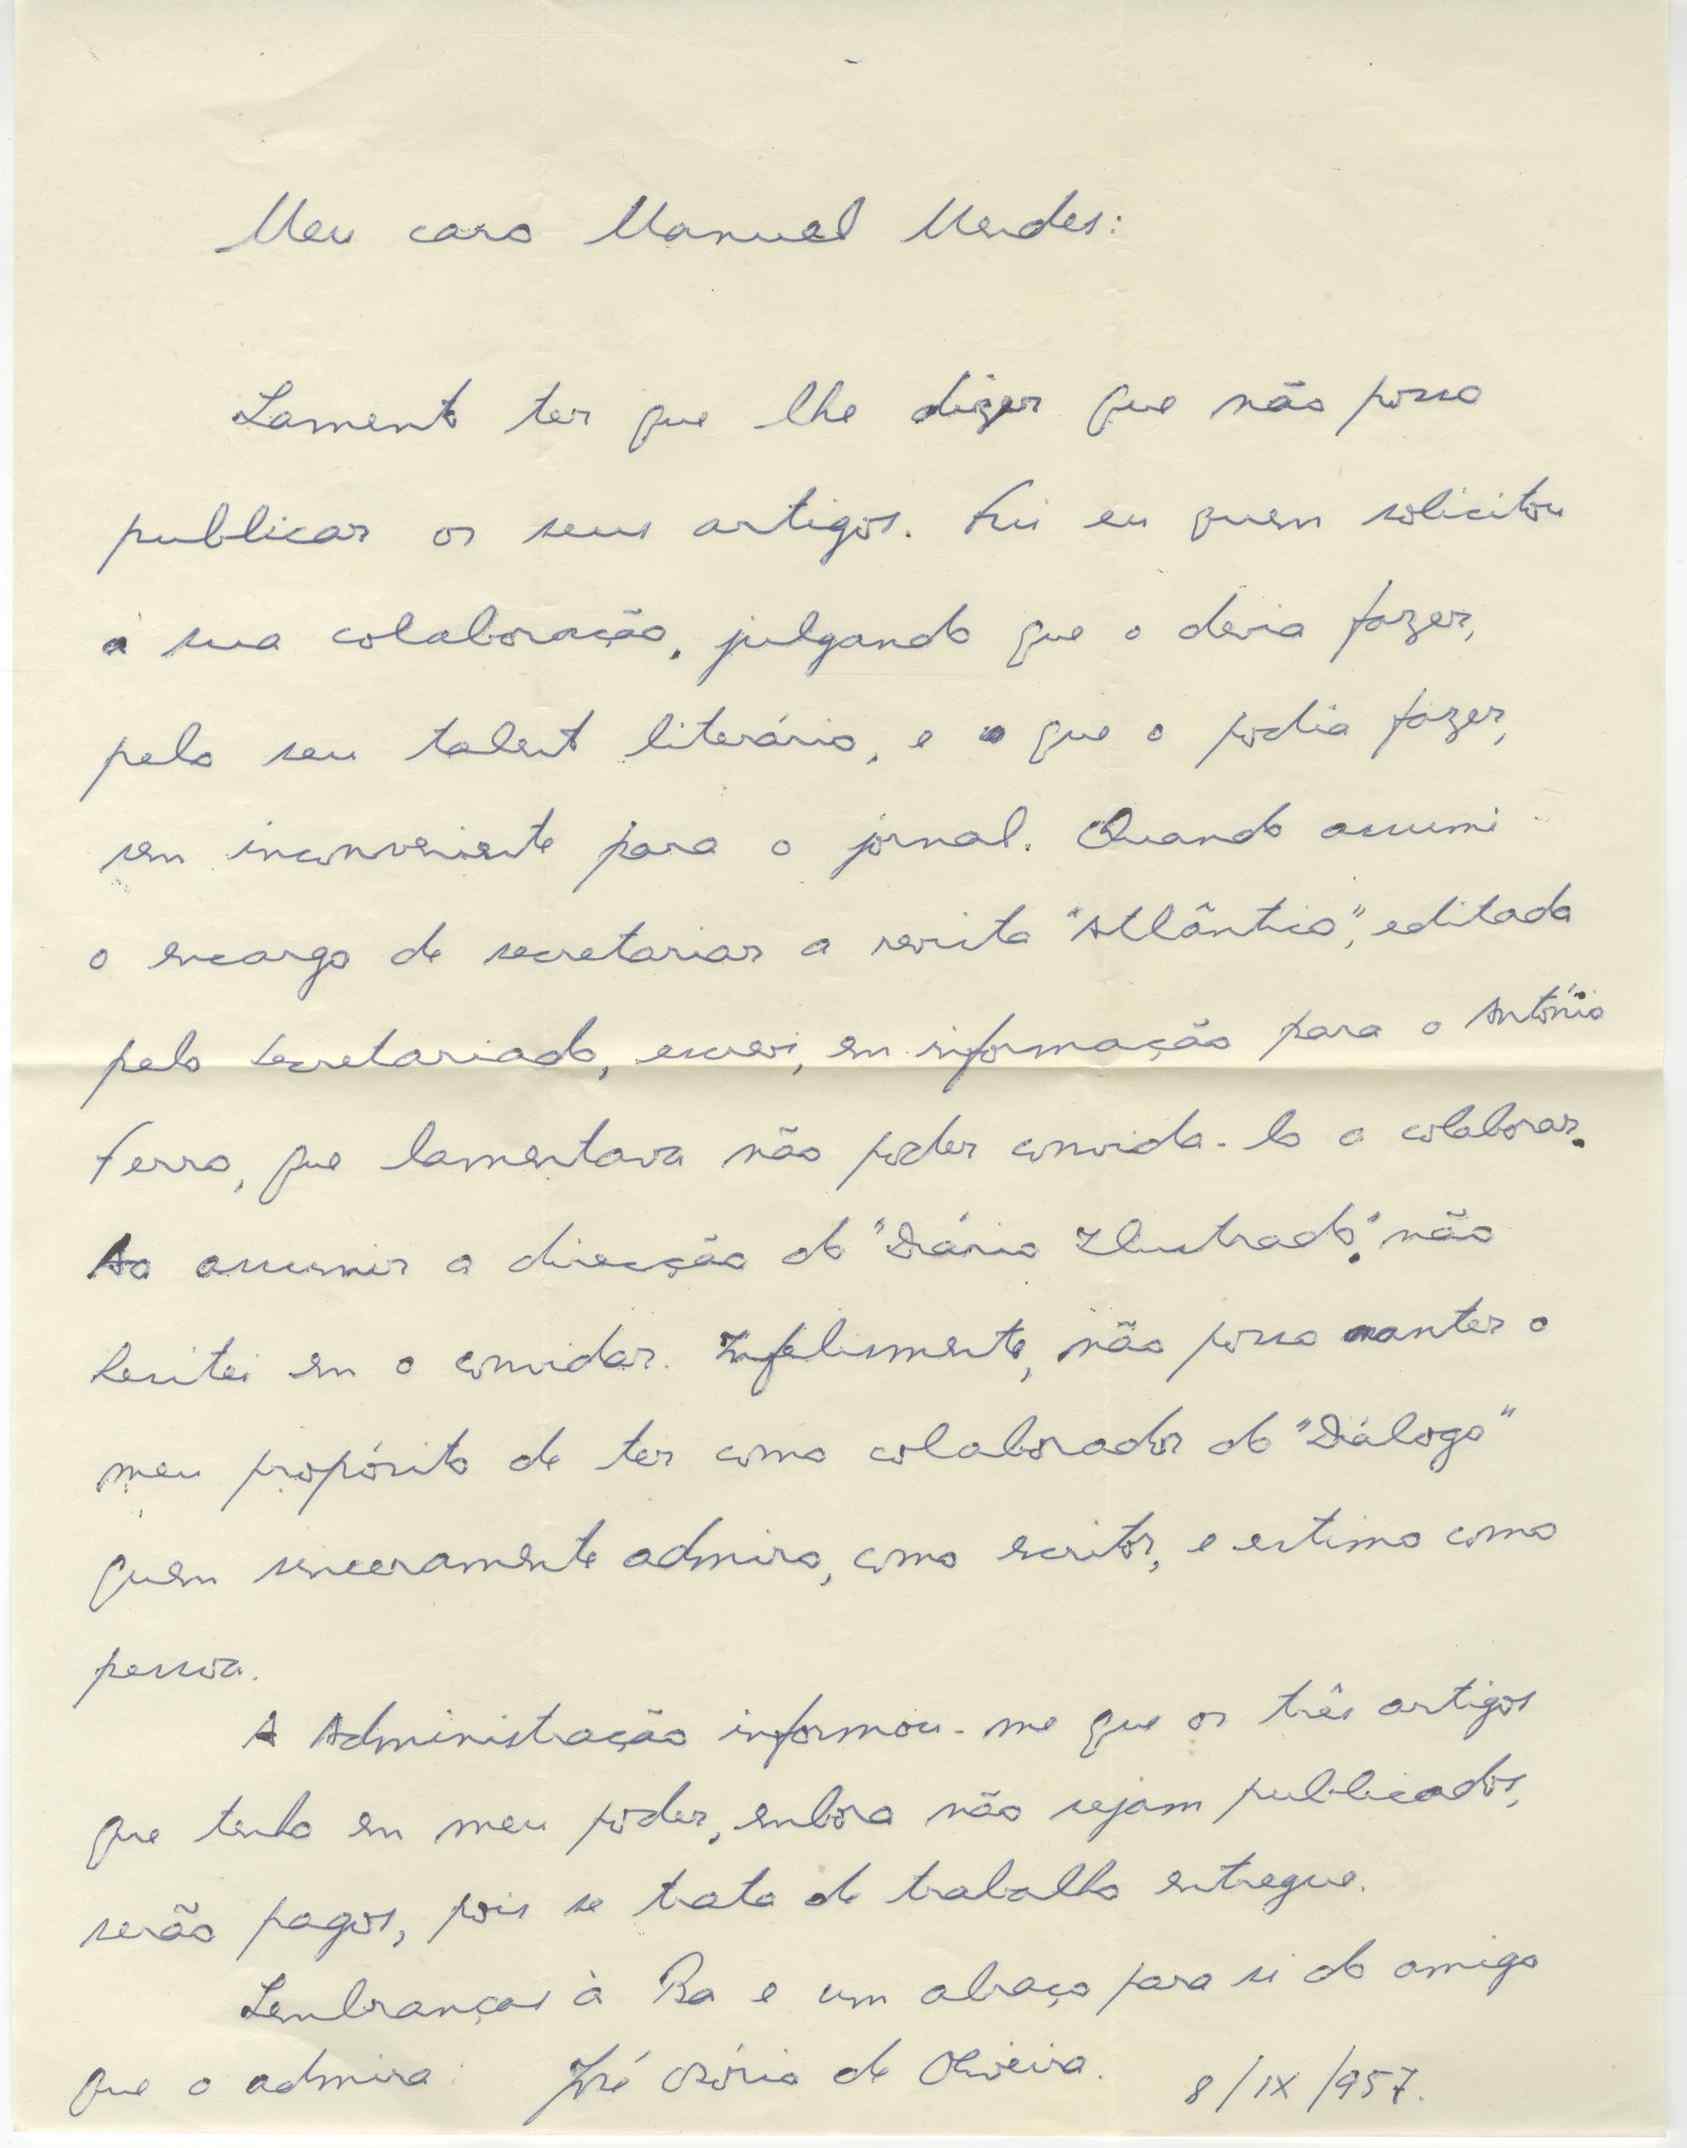 Meu caro Manuel Mendes:
Lamento ter que lhe dizer que não posso
publicar os seus artigos. Fui eu quem solicitou
a sua colaboração, julgando que o devia fazer,
pelo seu talento literário, e que o podia fazer,
sem inconveniente para o jornal. Quando assumi
o encargo de secretariar a revista "Atlântico", editada
pelo Secretariado, escrevi, em informação para o António
Ferro, que lamentava não poder convida-lo a colaborar.
Ao assumir a direcção do "Diário Ilustrado", não
hesitei em o convidar. Infelizmente, não posso manter o
meu propósito de ter como colaborador do "Diálogo"
quem sinceramente admiro, como escritor, e estimo como
pessoa.
A Administração informou-me que os três artigos
que tenho em meu poder, embora não sejam publicados,
serão pagos, pois se trata de trabalho entregue.
Lembranças à Ba e um abraço para si do amigo
que o admira José Osório de Oliveira. 8/IX/957.